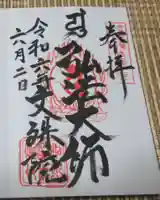 奉拝
弘法大師
文殊院
令和六年
六月二日